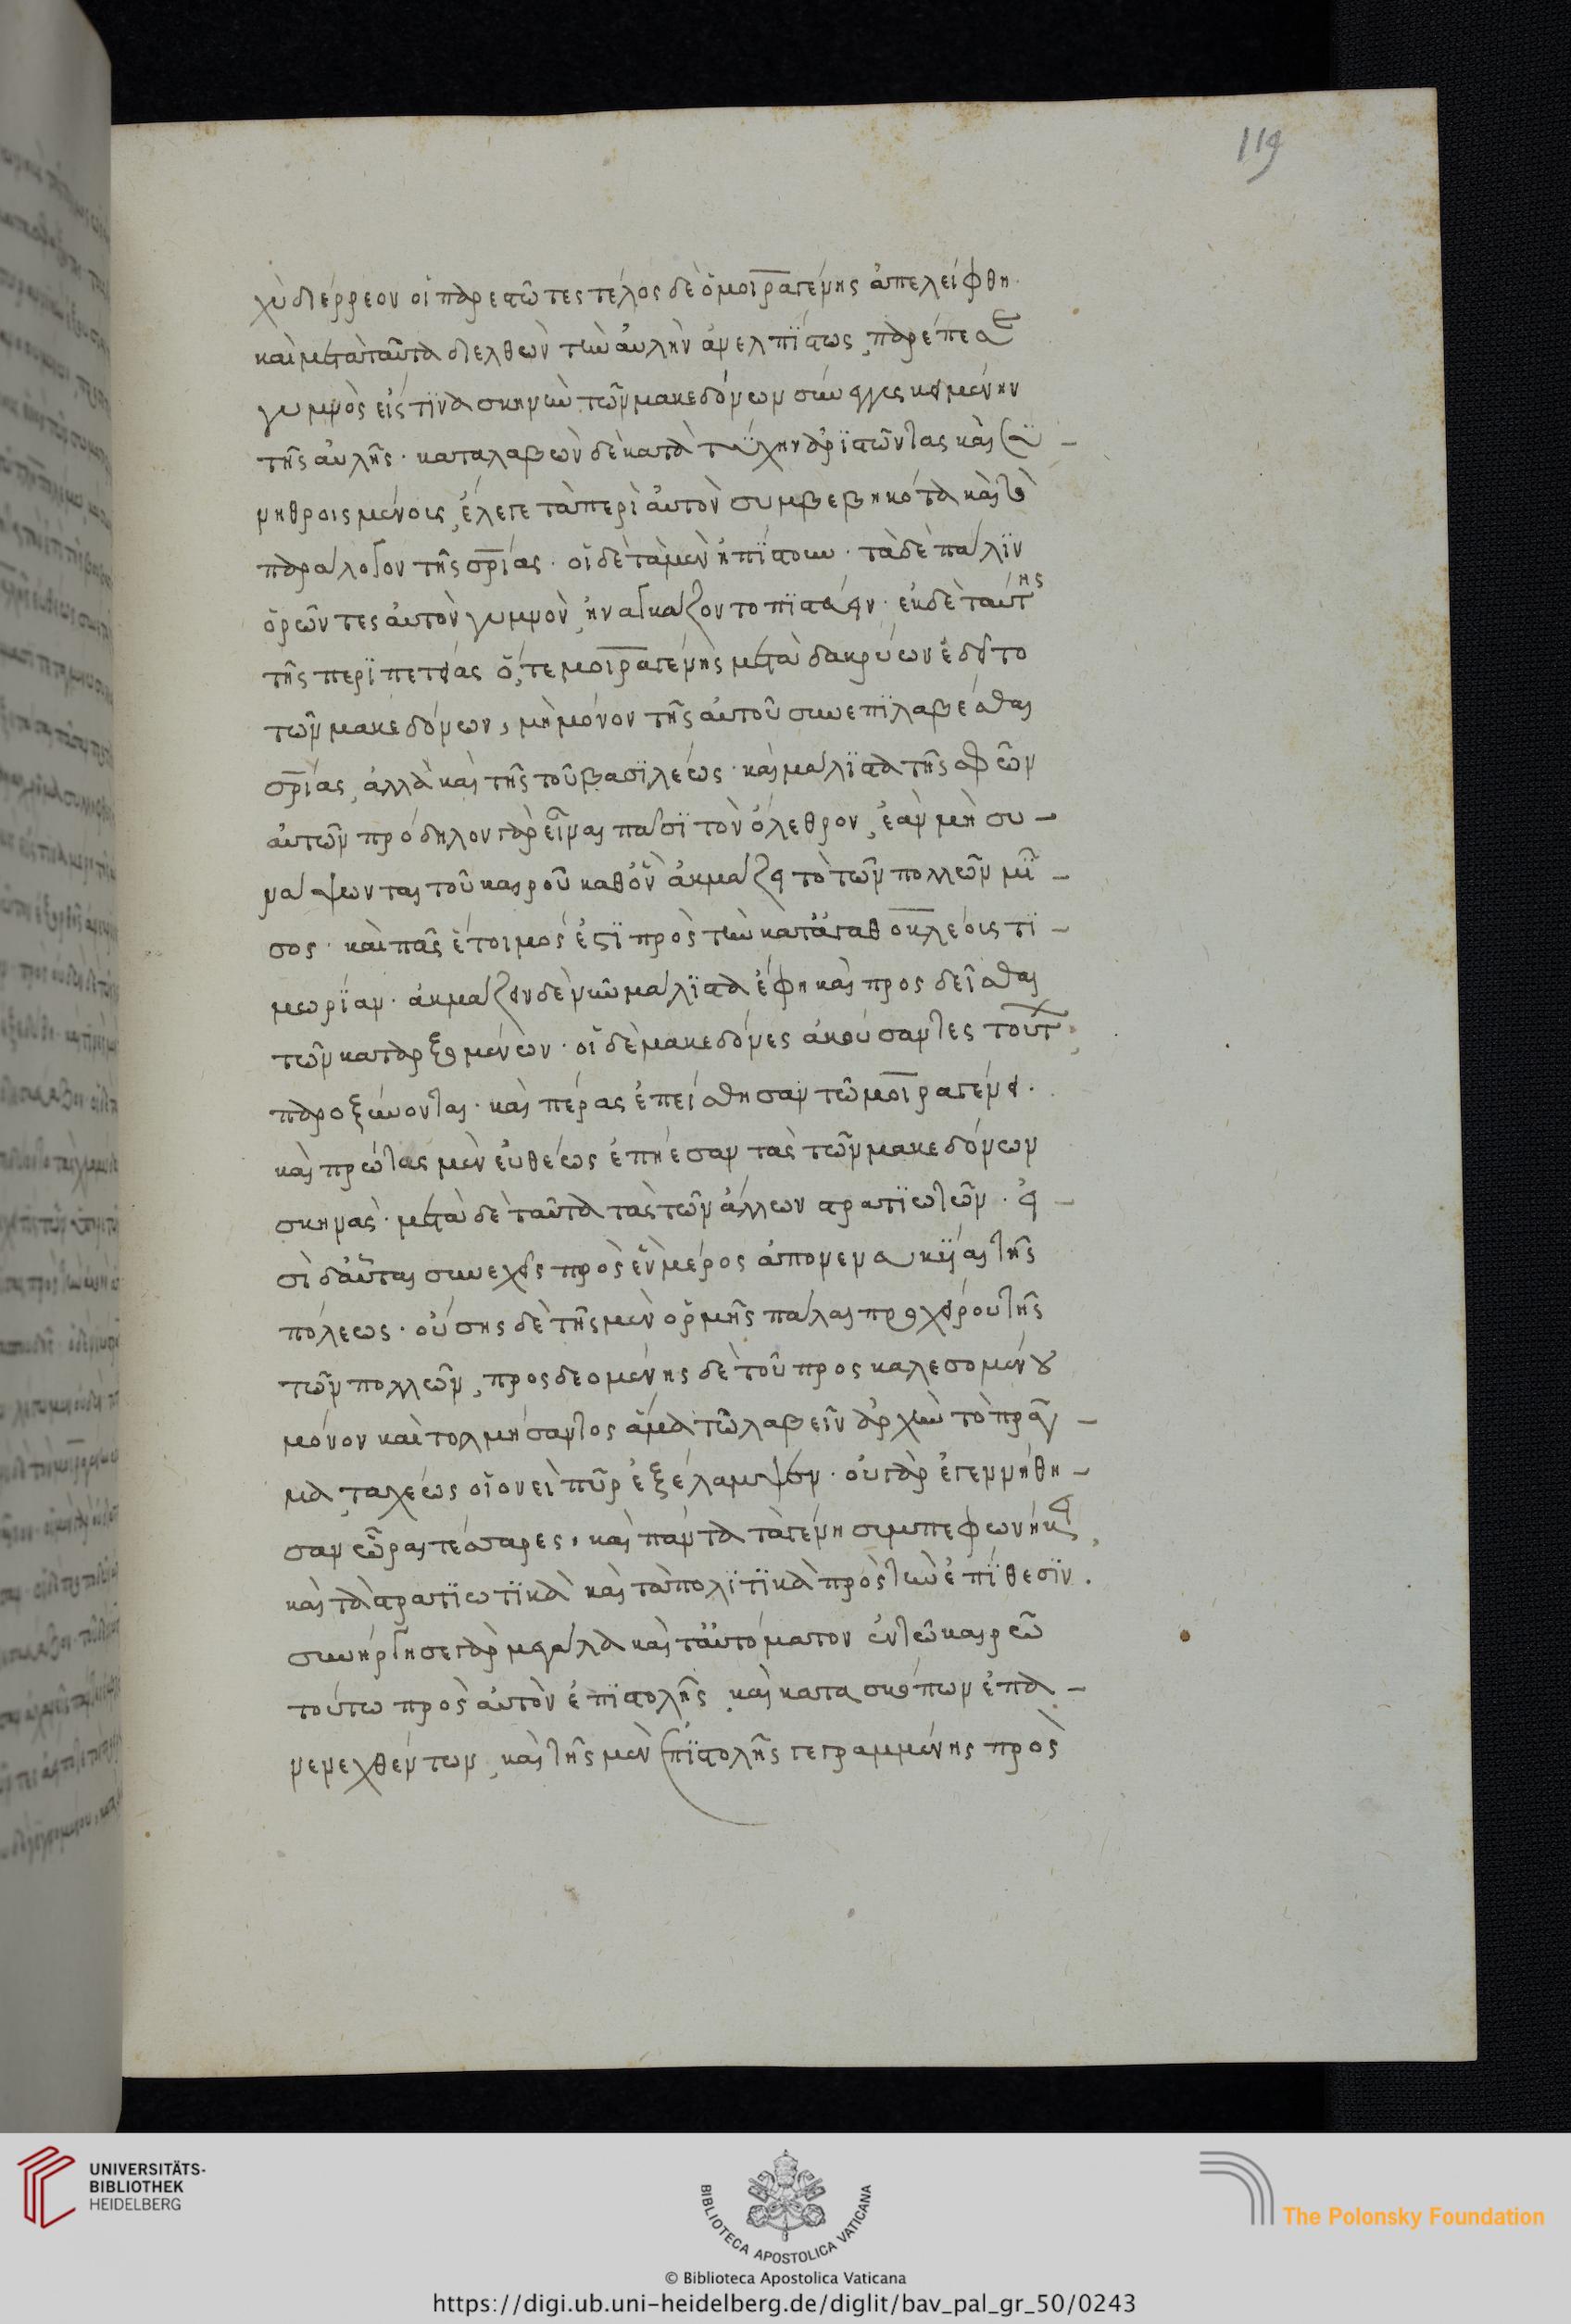 χὺ διέρρεον οἱ παρεστῶτες τέλος δὲ ὁ μοιραγένης ἀπελείφθη·
καὶ μετὰ ταῦτα διελθὼν τὴν ἀυλὴν ἀνελπίστως, παρέπεσε
γυμνὸς εἰς τϊνα σκηνὴν τῶν μακεδόνων σύνεγγυς κειμένην
τῆς ἀυλῆς· καταλαβὼν δὲ κατὰ τύχην ἀρϊστῶντας καὶ συ-
νηθροισμένους, ἔλεγε τὰ περὶ ἁυτὸν συμβεβηκότα καὶ τὸ
παράλογον τῆς σρίας· οἱ δὲ τὰ μὲν ἠπϊστουν· τὰ δὲ πάλϊν
ὁρῶντες ἀυτὸν γυμνὸν, ἠναγκάζοντο πϊστεύειν· ἐκ δὲ ταύτης
τῆς περϊπετείας ὅ,τε μοιραγένης μετὰ δακρύων ἐδεῖτο
τῶν μακεδόνων, μὴ μόνον τῆς ἀυτοῦ συνεπϊλαβέσθαι
σρίας, ἀλλὰ καὶ τῆς τοῦ βασϊλέως· καὶ μάλϊστα τῆς σφῶν
ἀυτῶν πρόδηλον γὰρ εἶναι πᾶσϊ τὸν ὄλεθρον, ἐὰν μὴ συ-
νάψωνται τοῦ καιροῦ καθ' ὃν ἀκμάζει τὸ τῶν πολλῶν μῖ-
σος· καὶ πᾶς ἕτοιμός ἐστϊ πρὸς τὴν κατ' ἀγαθοκλέους τϊ-
μωρϊαν· ἀκμάζειν δὲ νῦν μάλϊστα ἔφη καὶ προσδεῖσθαι
τῶν καταρξομένων· οἱ δὲ μακεδόνες ἀκούσαντες τούτων,
παροξύνονται· καὶ πέρας ἐπείσθησαν τῶ μοιραγένει·
καὶ πρώτας μὲν ἐυθέως ἐπήεσαν τὰς τῶν μακεδόνων
σκηνὰς· μετὰ δὲ ταῦτα τὰς τῶν ἄλλων στρατϊωτῶν· εἰ-
σὶ δ' ἁῦται συνεχεῖς πρὸς ἓν μέρος ἀπονενευκυῖαι τῆς
πόλεως· οὔσης δὲ τῆς μὲν ὁρμῆς πάλαι προχείρου τῆς
τῶν πολλῶν, προσδεομένης δὲ τοῦ προσκαλεσομένου
μόνον καὶ τολμήσαντος ἅμα τῶ λαβεῖν ἀρχὴν τὸ πρᾶγ-
μα, ταχέως οἱονεὶ πῦρ ἐξέλαμψεν· οὐ γὰρ ἐγεννήθη-
σαν ὧραι τέσσαρες, καὶ πάντα τὰ γένη συμπεφωνήκει,
καὶ τὰ στρατϊωτϊκὰ καὶ τὰ πολϊτϊκὰ πρὸς τὴν ἐπϊθεσϊν·
συνήργησε γὰρ μεγάλα καὶ τἀυτόματον ἐν τῶ καιρῶ
τούτω πρὸς ἀυτὸν ἐπϊστολῆς, καὶ κατασκόπων ἐπα-
νενεχθέντων, καὶ τῆς μὲν ἐπϊστολῆς γεγραμμένης πρὸς
119
UNIVERSITÄTS-
BIBLIOTHEK
HEIDELBERG
BIBLIOTECA APOSTOLICA VATICANA
The Polonsky Foundation
© Biblioteca Apostolica Vaticana
https://digi.ub.uni-heidelberg.de/diglit/bav_pal_gr_50/0243